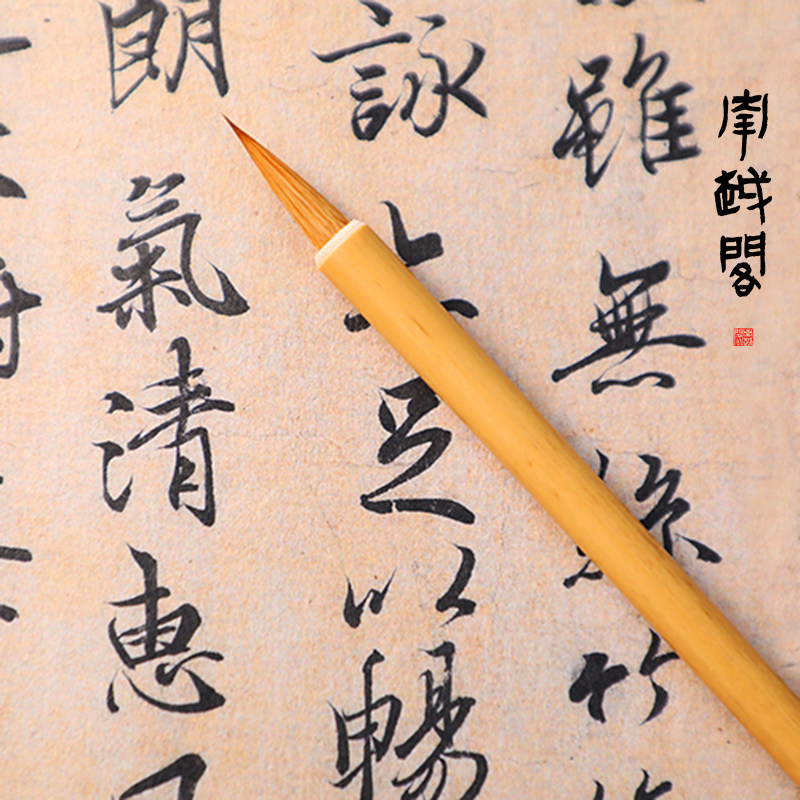 南越閣
雖無絲竹
詠亦足以暢
朗氣清惠